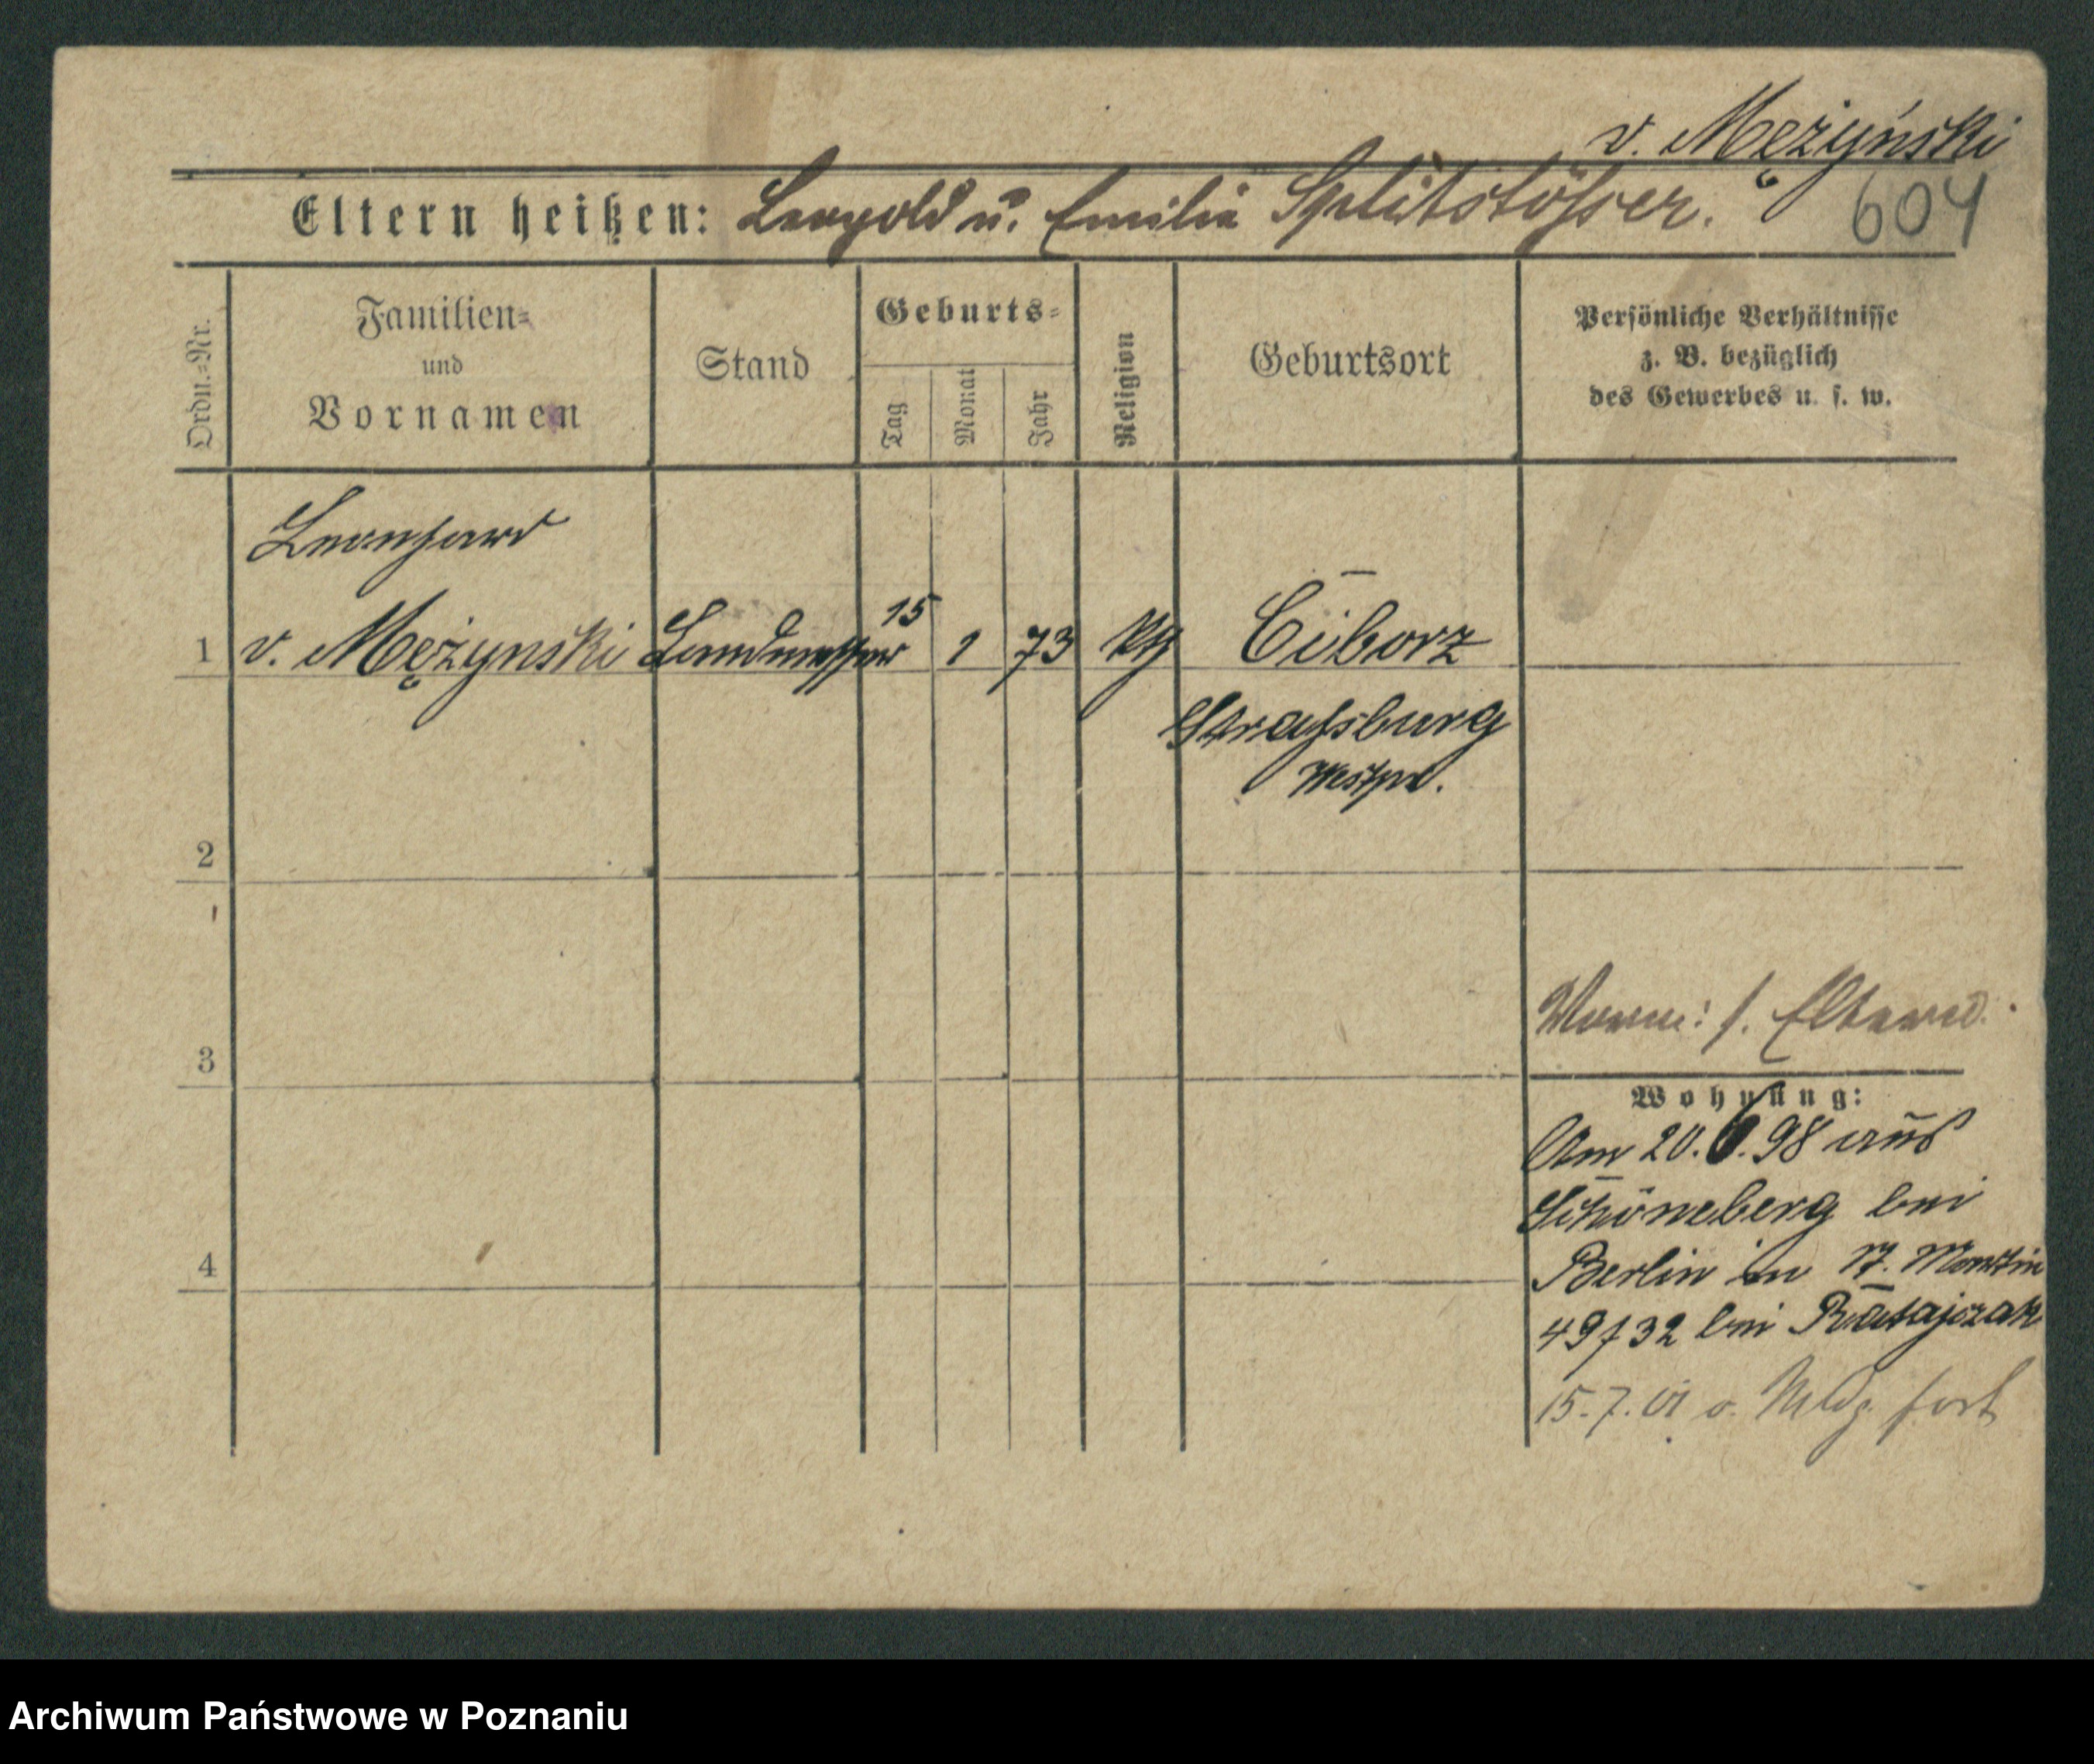 v. Mężyński
Eltern heißen: Leopold u. Emilie Splitstößser.
604
Ordn.-Nr.
Familien-
und
Vornamen
Stand
Geburts-
Tag
Monat
Jahr
Religion
Geburtsort
Persönliche Verhältnisse
z. B. bezüglich
des Gewerbes u. s. w.
Leonhard
1 v. Mężynski Landmesser 15 1 73 kth Ciborz
Strassburg
Westpr.
2
3
4
Vorm: s. Eltern.
Wohnung:
Am 20.6.98 aus
Schöneberg bei
Berlin in St. Martin
49/32 bei Ratajczak
15.7.01 o. Mldg. fort
Archiwum Państwowe w Poznaniu